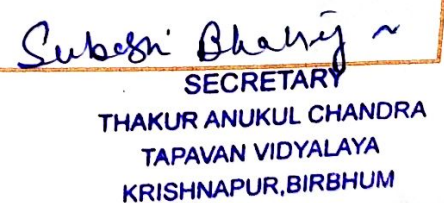 SECRETARY
THAKUR ANUKUL CHANDRA
TAPAVAN VIDYALAYA
KRISHNAPUR,BIRBHUM